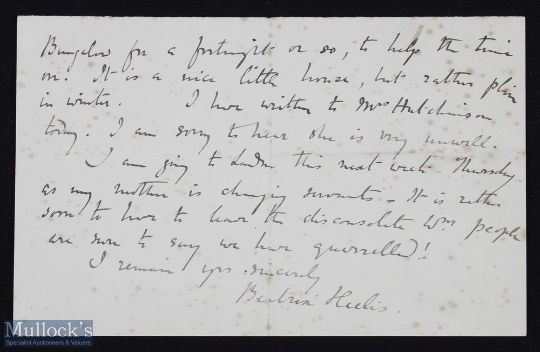 Bungalow for a fortnight or so, to help the time
on. It is a nice little house, but rather plain
in winter. I have written to Mrs Hutchinson
today. I am sorry to hear she is very unwell.
I am going to London this next week - Thursday
as my mother is changing servants - It is rather
soon to have to leave the disconsolate Wm. people
are sure to say we have quarrelled!
I remain yrs sincerely
Beatrix Heelis.
Mullock's
Specialist Auctioneers & Valuers